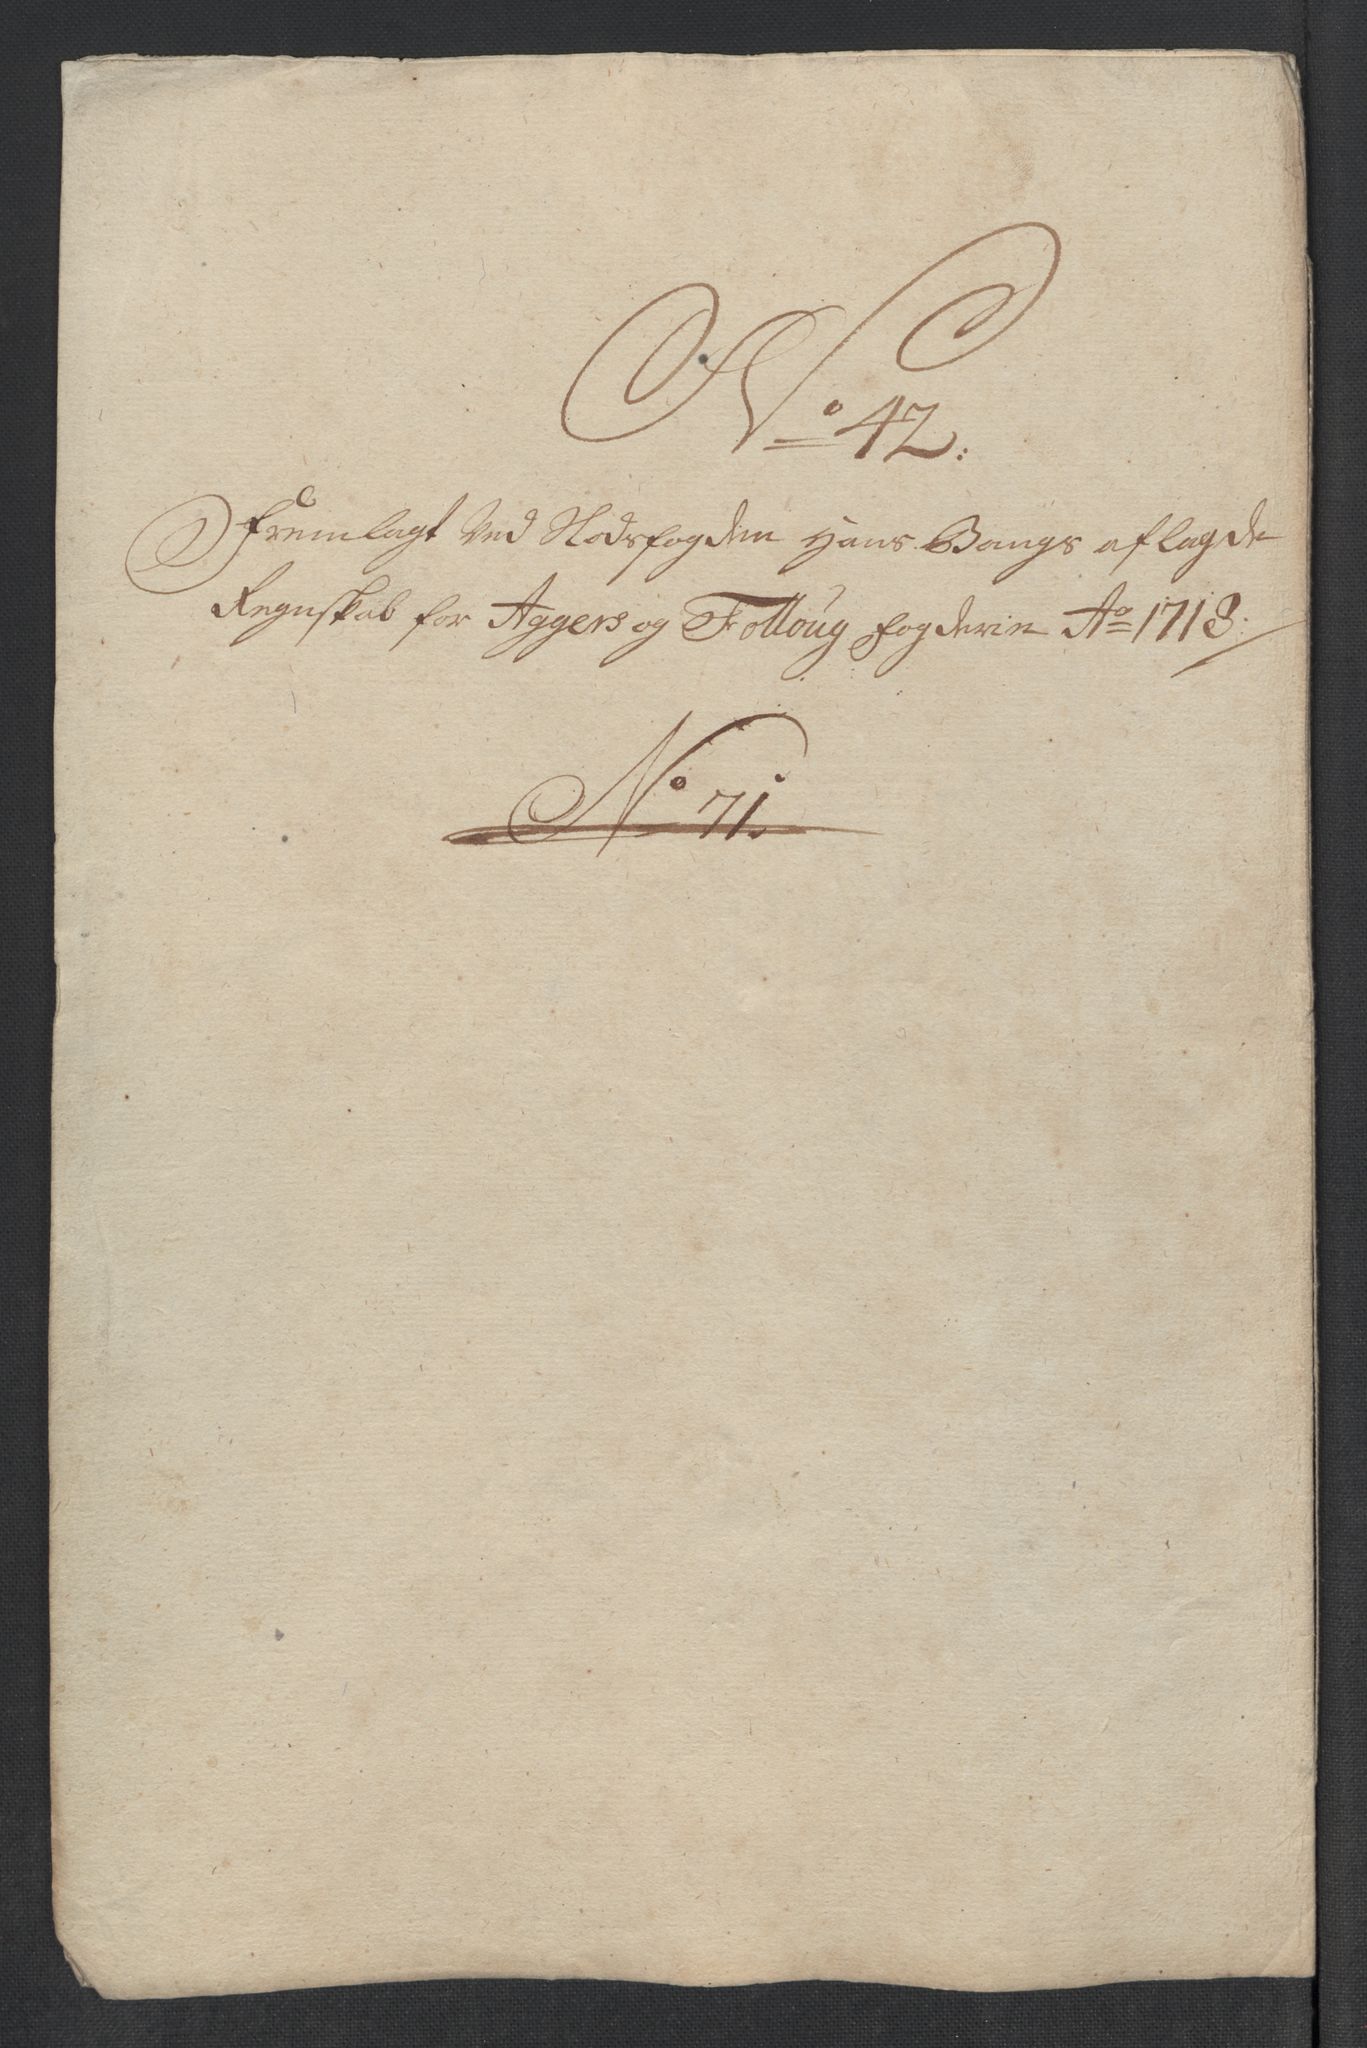 No 42:
Fremlagt Ved Stodsfogden Hans Bangs aflagde
Regnskab for Aggers og Folloug fogderie Ao 1718.
No 71.